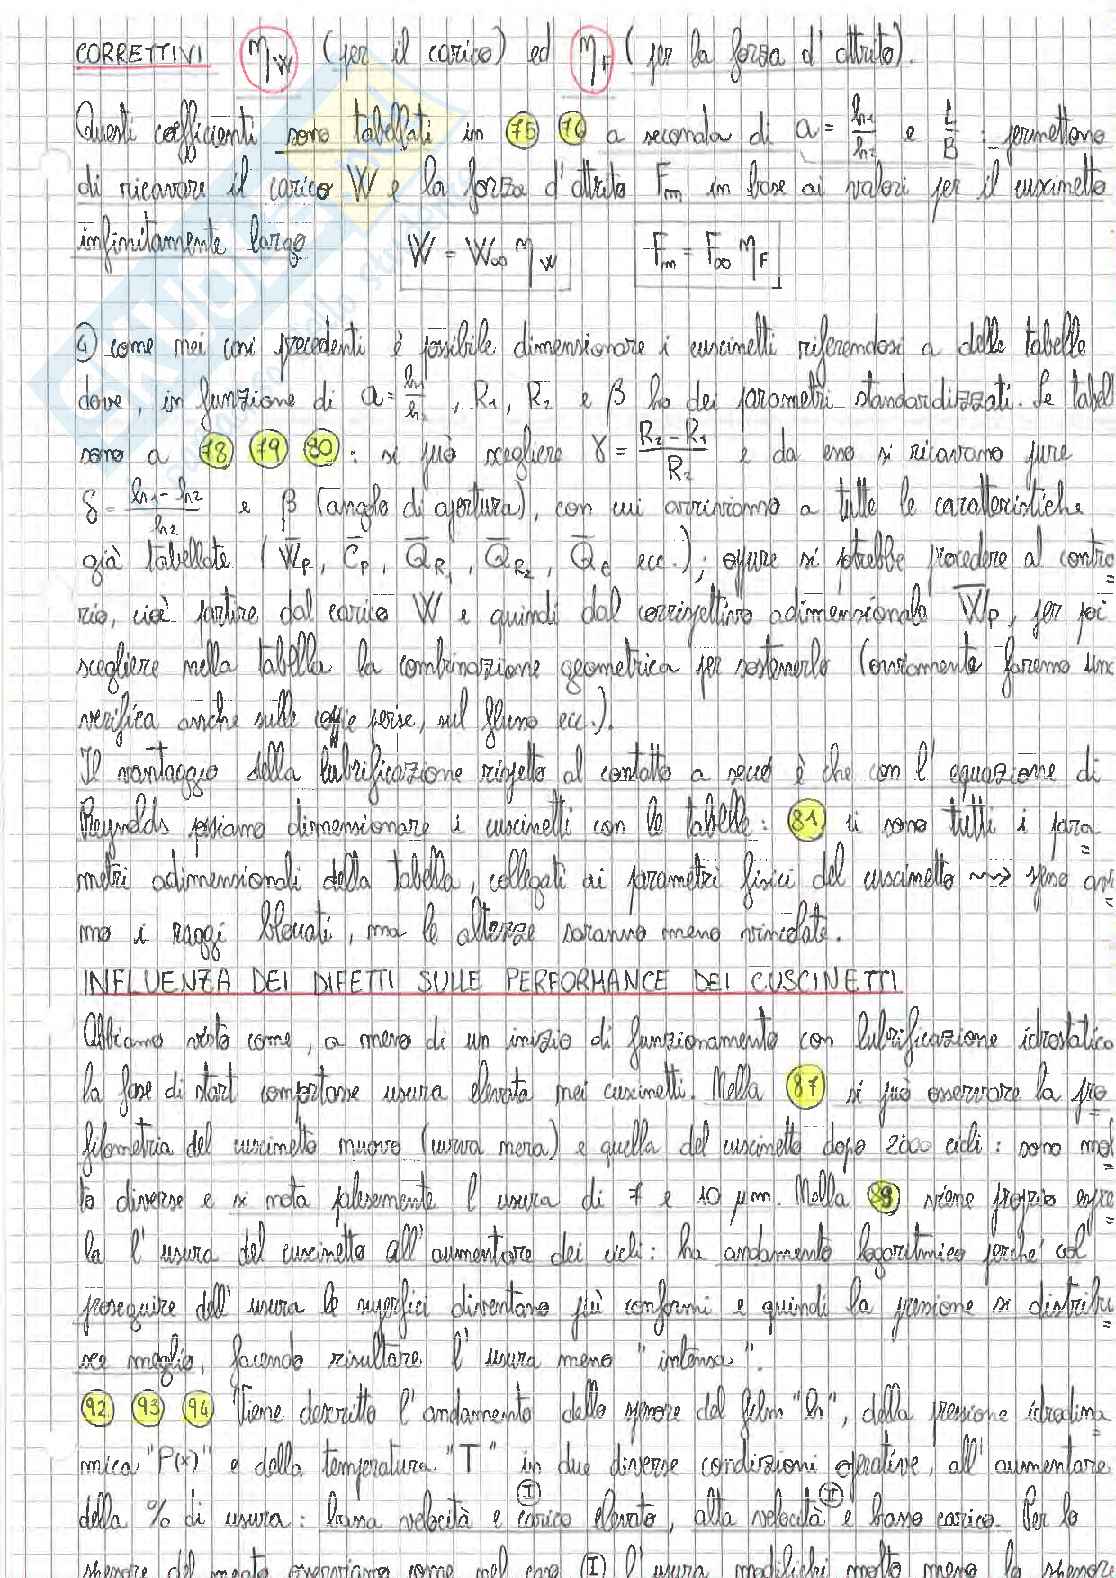 CORRETTIVI ηW (per il carico) ed ηF (per la forza d'attrito).
Questi coefficienti sono tabellati in 75 76 a seconda di a = h1/h2 e L/B : permettono
di ricavare il carico W e la forza d'attrito Fm in base ai valori per il cuscinetto
infinitamente largo W = W∞ ηW Fm = F∞ ηF
4) come nei casi precedenti è possibile dimensionare i cuscinetti riferendosi a delle tabelle
dove, in funzione di a = h1/h2, R1, R2 e β ho dei parametri standardizzati. Le tabell
sono a 78 79 80 : si può scegliere γ = R2-R1/R2 e da esso si ricavano pure
δ = h1-h2/h2 e β (angolo di apertura), con cui arriviamo a tutte le caratteristiche
già tabellate (W̅P, C̅P, Q̅R1, Q̅R2, Q̅C ecc.); oppure si potrebbe procedere al contra
rio, cioè partire dal carico W e quindi dal corrispettivo adimensionale W̅P, per poi
scegliere nella tabella la combinazione geometrica per sostenerlo (ovviamente faremo una
verifica anche sulle coppie perse, sul flusso ecc.).
Il vantaggio della lubrificazione rispetto al contatto a secco è che con l'equazione di
Reynolds possiamo dimensionare i cuscinetti con le tabelle: 81 ci sono tutti i para
metri adimensionali della tabella, collegati ai parametri fisici del cuscinetto ~~> spesso avre
mo i raggi bloccati, ma le altezze saranno meno vincolate.
INFLUENZA DEI DIFETTI SULLE PERFORMANCE DEI CUSCINETTI
Abbiamo visto come, a meno di un inizio di funzionamento con lubrificazione idrostatica
la fase di start comportasse usura elevata nei cuscinetti. Nella 87 si può osservare la pro
filometria del cuscinetto nuovo (curva nera) e quella del cuscinetto dopo 2000 cicli: sono mol
to diverse e si nota palesemente l'usura di 7 e 10 μm. Nella 89 viene proprio espre
la l'usura del cuscinetto all'aumentare dei cicli: ha andamento logaritmico perché col
proseguire dell'usura le superfici diventano più conformi e quindi la pressione si distribu
sce meglio, facendo risultare l'usura meno "intensa".
92 93 94 Viene descritto l'andamento dello spessore del film "h", della pressione idrodina
mica "P(x)" e della temperatura "T" in due diverse condizioni operative, all'aumentare
della % di usura: bassa velocità e carico elevato (I), alta velocità e basso carico (II). Per lo
spessore del meato osserviamo come nel caso (I) l'usura modifichi molto meno lo spessore